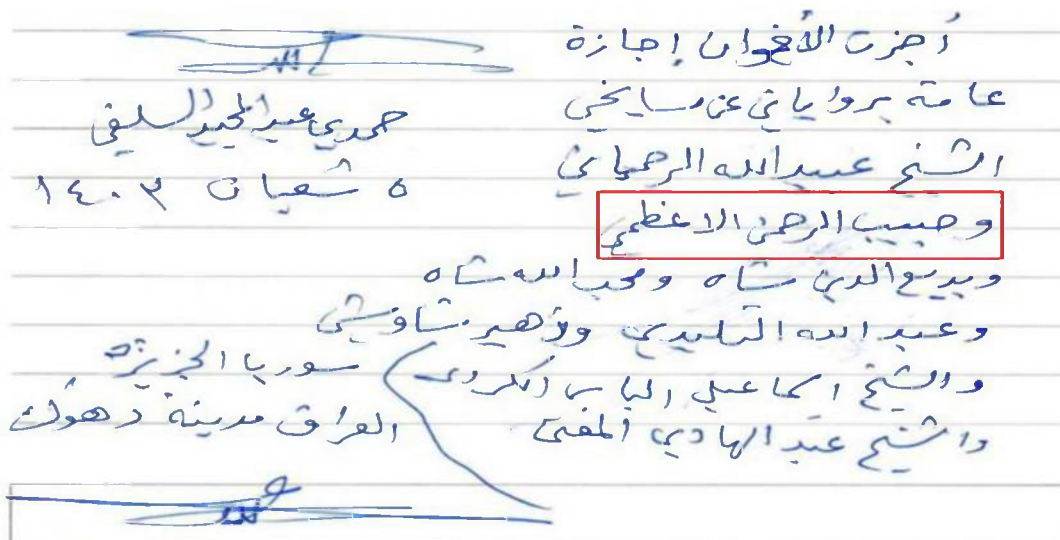 أجزت الأخوان إجازة
عامة بروياتي عن مسايخي
الشيخ عبيد الله الرحماني
وحبيب الرحمن الاعظمي
وبديع الدين شاه ومحب الله شاه
وعبد الله التليدي وزهير شاوشي
والشيخ اسماعيل الياس الكردي
والشيخ عبد الهادي المفتي
حمدي عبد المجيد السلفي
٥ شعبان ١٤٠٣
سوريا الجزيرة
العراق مدينة دهوك